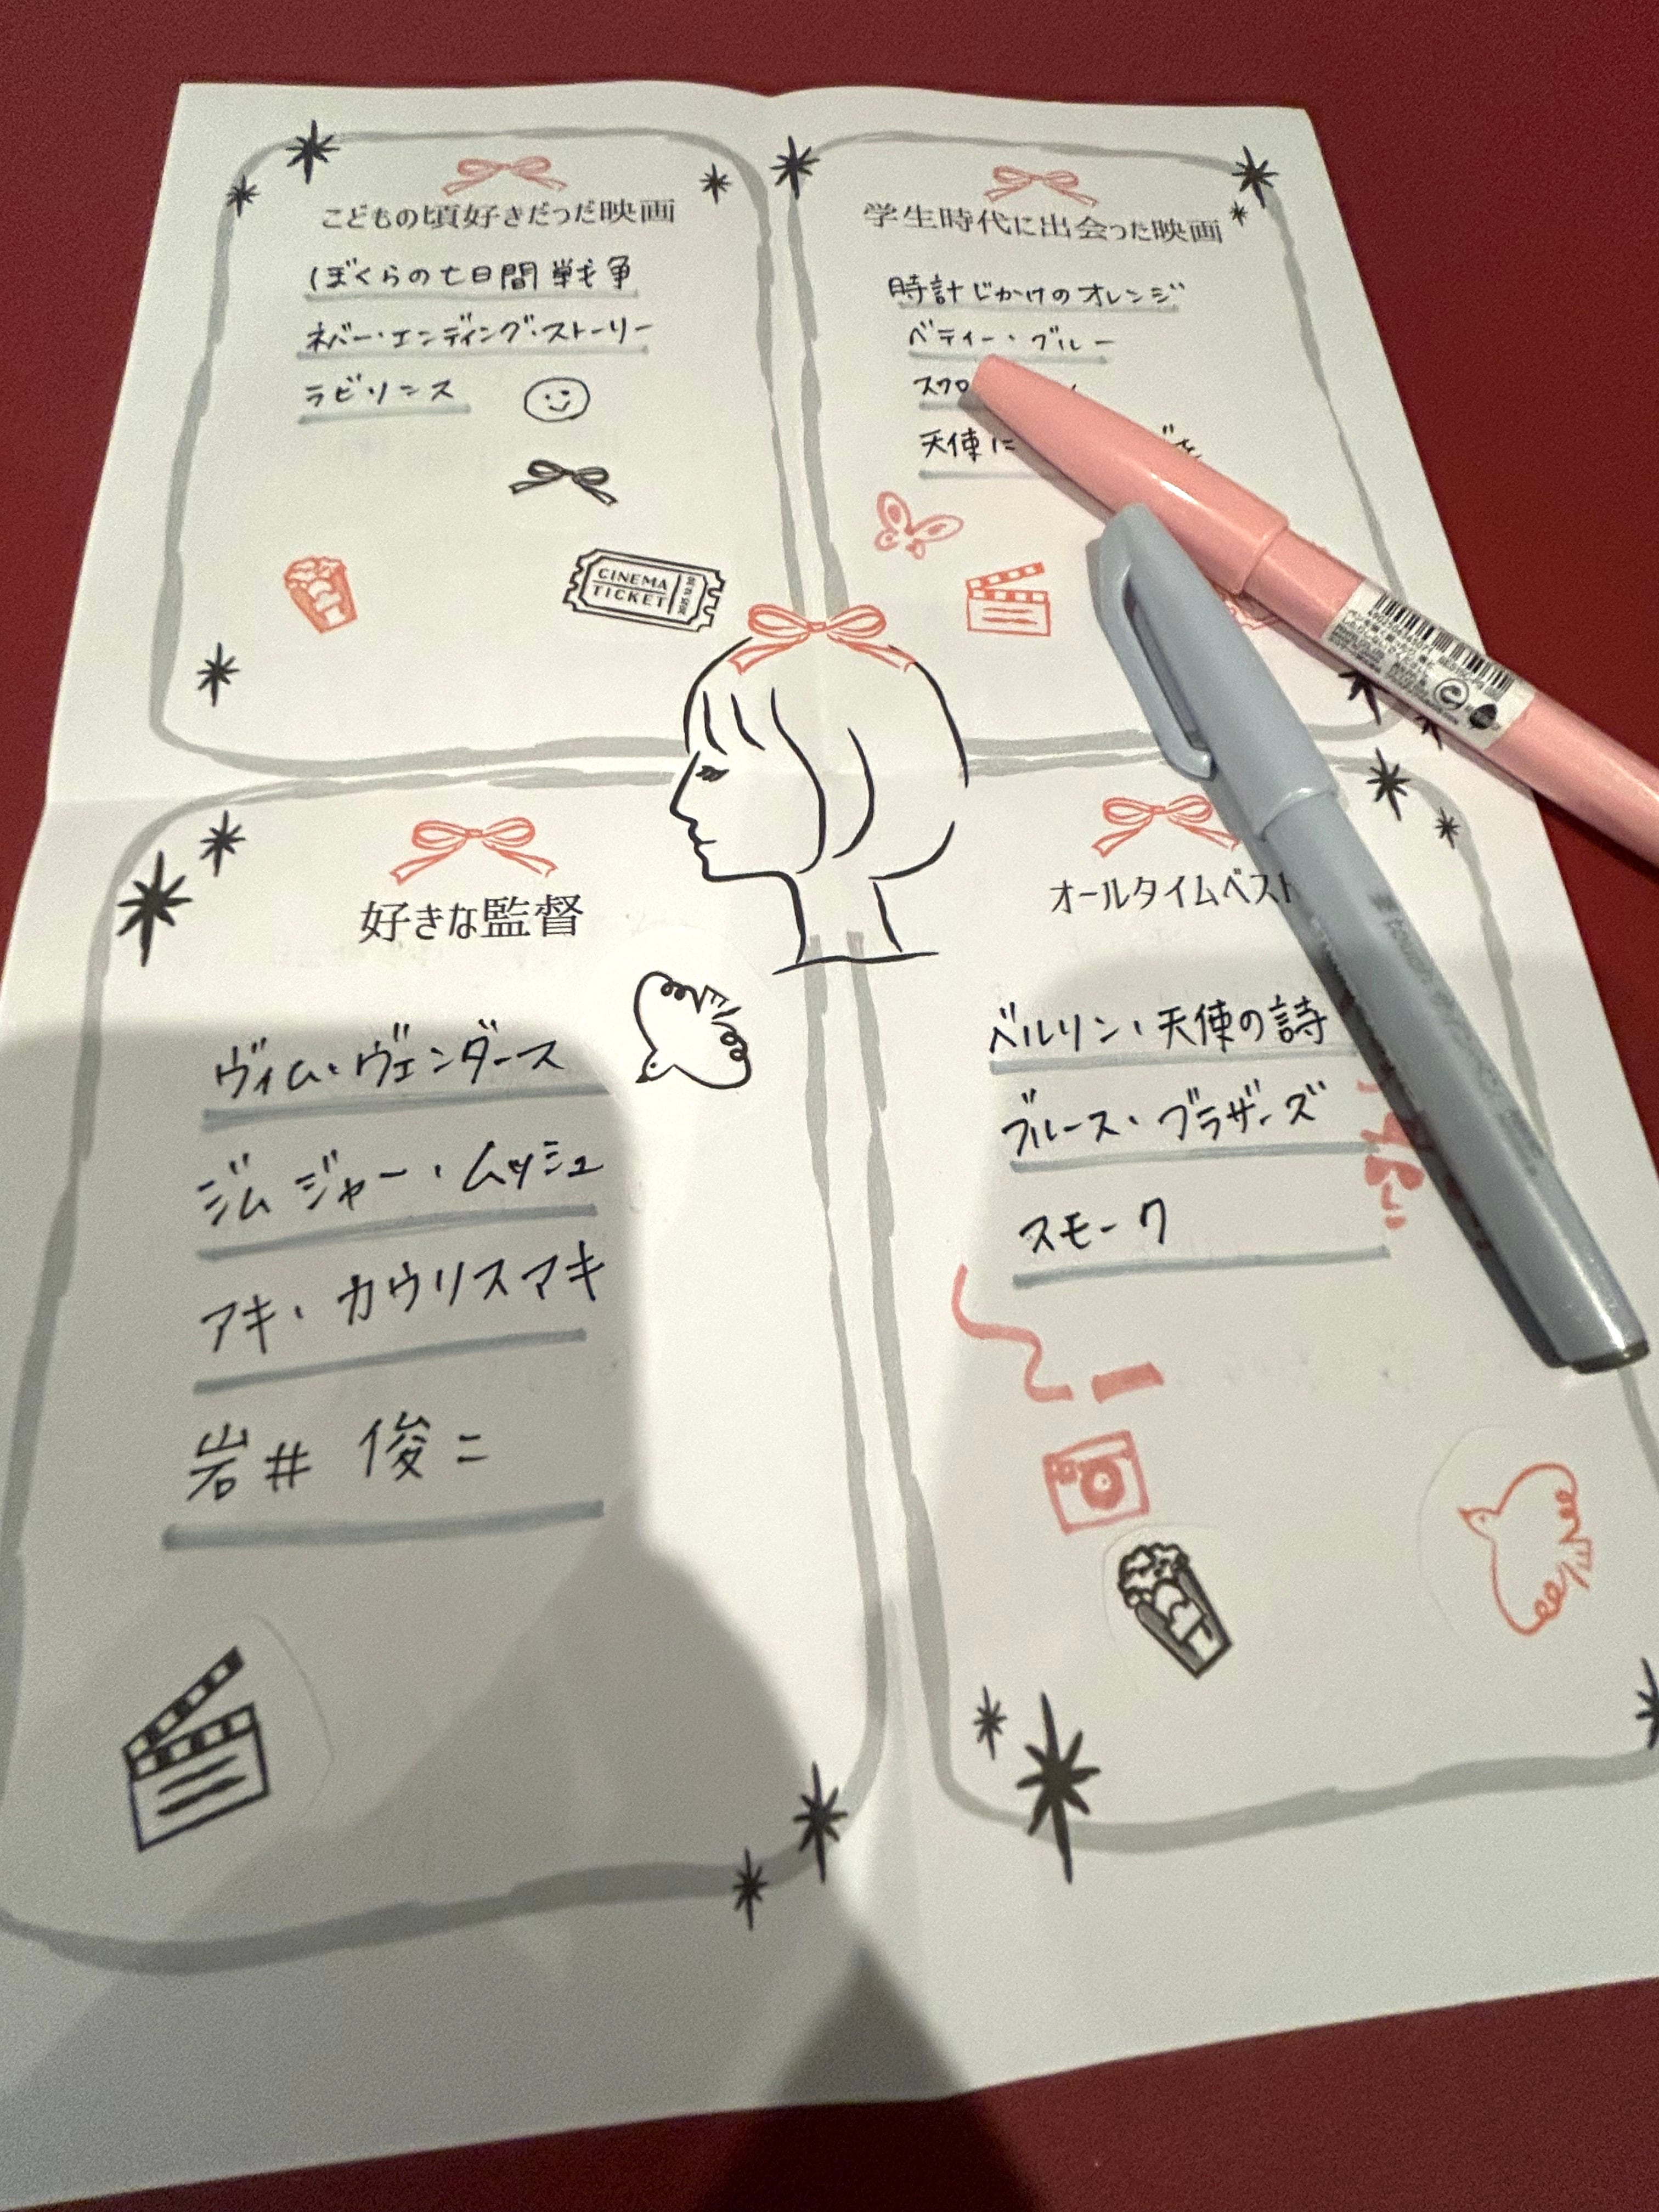 こどもの頃好きだった映画
ぼくらの七日間戦争
ネバー・エンディング・ストーリー
ラビリンス
CINEMA
TICKET
学生時代に出会った映画
時計じかけのオレンジ
ベティー・ブルー
スワロ
天使に
を
好きな監督
ヴィム・ヴェンダース
ジム ジャー・ムッシュ
アキ・カウリスマキ
岩井 俊二
オールタイムベスト
ベルリン・天使の詩
ブルース・ブラザーズ
スモーク